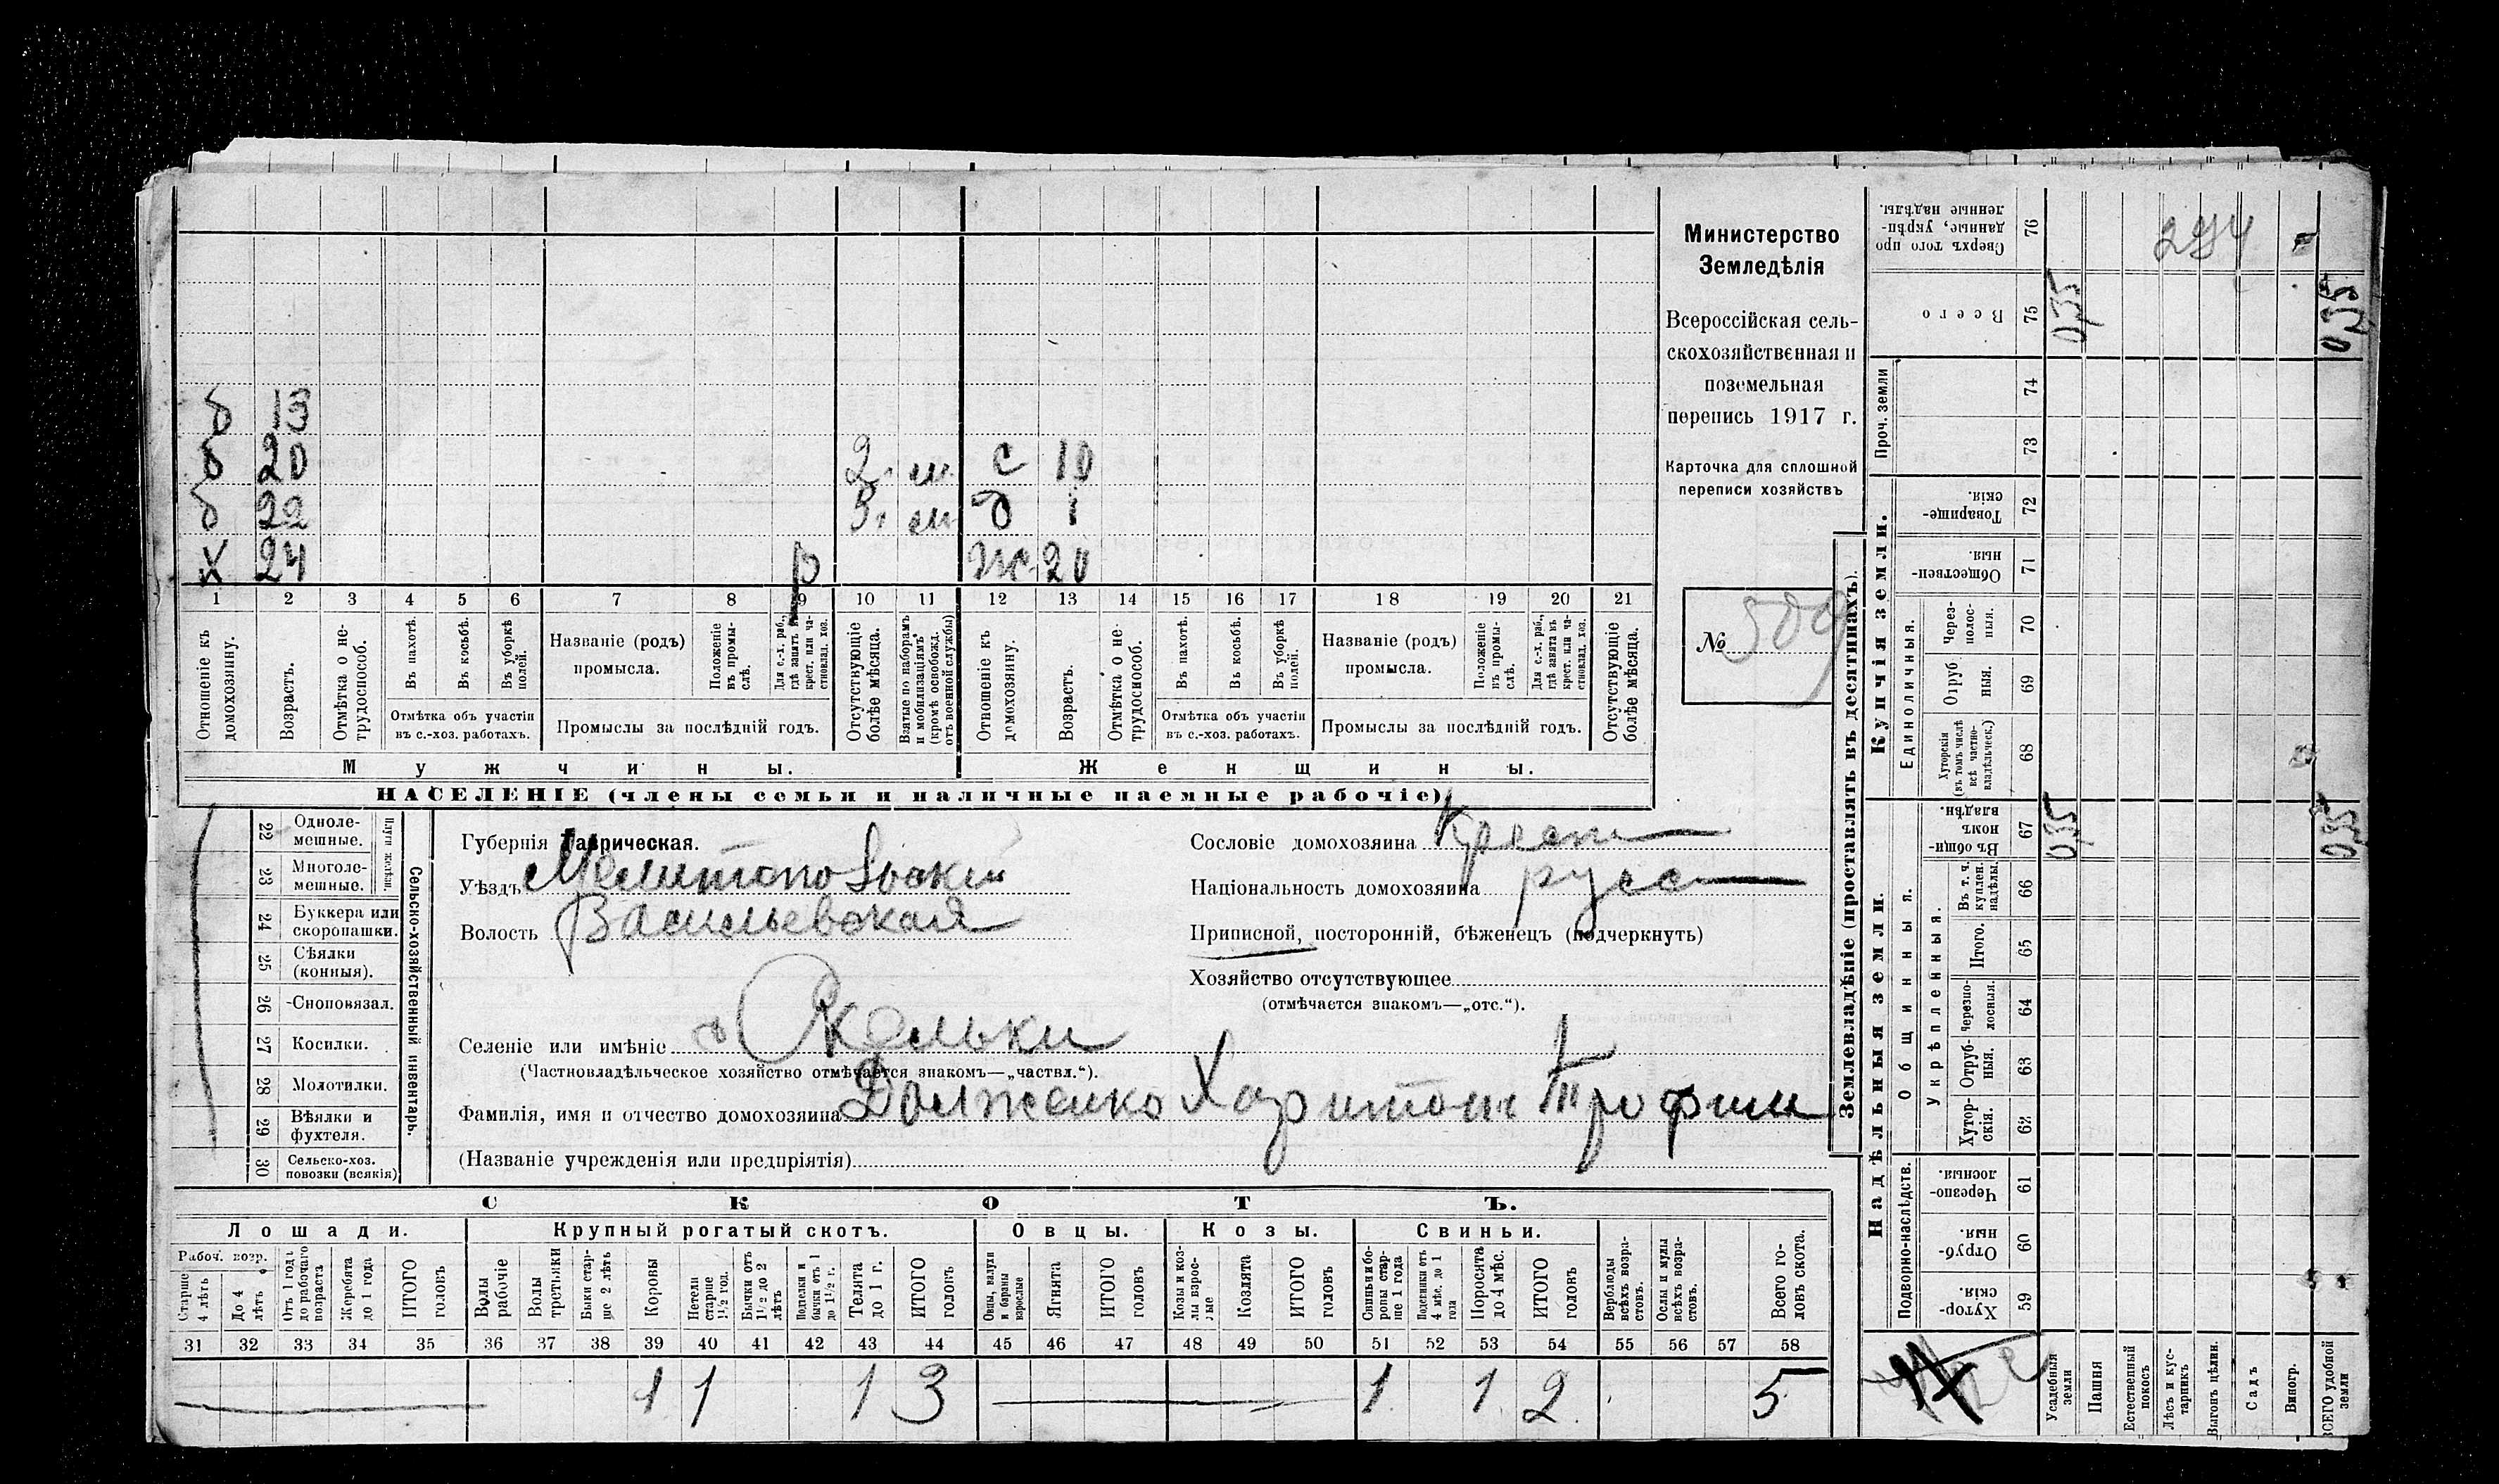 Министерство
Земледѣлія
Всероссійская сель-
скохозяйственная и
поземельная
перепись 1917 г.
Карточка для сплошной
переписи хозяйствъ
№ 509
б 13
б 20 2 м с 10
б 22 3 м д 1
х 24 р ж 20
1 2 3 4 5 6 7 8 9 10 11 12 13 14 15 16 17 18 19 20 21
Отношеніе къ домохозяину.
Возрастъ.
Отмѣтка о не-трудоспособ.
Въ пахотѣ.
Въ косьбѣ.
Въ уборкѣ полей.
Отмѣтка объ участіи
въ с.-хоз. работахъ.
Названіе (родъ)
промысла.
Положеніе въ промы-слѣ.
Для с.-х. раб., гдѣ занятъ въ крест. или ча-стновлад. хоз.
Промыслы за послѣдній годъ.
Отсутствующіе болѣе мѣсяца.
Взятые по наборамъ и мобилизаціямъ (кромѣ освобожд. отъ военной службы)
Отношеніе къ домохозяину.
Возрастъ.
Отмѣтка о не-трудоспособ.
Въ пахотѣ.
Въ косьбѣ.
Въ уборкѣ полей.
Отмѣтка объ участіи
въ с.-хоз. работахъ.
Названіе (родъ)
промысла.
Положеніе въ промы-слѣ.
Для с.-х. раб., гдѣ занята въ крест. или ча-стновлад. хоз.
Промыслы за послѣдній годъ.
Отсутствующіе болѣе мѣсяца.
Мужчины. Женщины.
НАСЕЛЕНІЕ (члены семьи и наличные наемные рабочіе)
22 Одноле-мешные.
23 Многоле-мешные.
Плуги желѣзн.
24 Буккера или скоропашки.
25 Сѣялки (конныя).
26 Сноповязал.
27 Косилки.
28 Молотилки.
29 Вѣялки и фухтеля.
30 Сельско-хоз. повозки (всякія)
Сельско-хозяйственный инвентарь.
Губернія Таврическая.
Уѣздъ Мелитопольскій
Волость Васильевская
Селеніе или имѣніе с Скельки
(Частновладѣльческое хозяйство отмѣчается знакомъ—„частвл.“).
Фамилія, имя и отчество домохозяина Долженко Харитонъ Трофим
(Названіе учрежденія или предпріятія)
Сословіе домохозяина Крест
Національность домохозяина русс
Приписной, посторонній, бѣженецъ (подчеркнуть)
Хозяйство отсутствующее
(отмѣчается знакомъ—„отс.“).
СКОТЪ.
Лошади. Крупный рогатый скотъ. Овцы. Козы. Свиньи.
Рабоч. возр.
Старше 4 лѣтъ
До 4 лѣтъ
Отъ 1 года до рабочаго возраста
Жеребята до 1 года
ИТОГО головъ
Волы рабочіе
Волы третьяки
Быки стар-ше 2 лѣтъ
Коровы
Нетели старше 1½ год.
Бычки отъ 1½ до 2 лѣтъ
Подтелки и бычки отъ 1 до 1½ г.
Телята до 1 г.
ИТОГО головъ
Овцы, валухи и бараны взрослые
Ягнята
ИТОГО головъ
Козы и коз-лы взрос-лые
Козлята
ИТОГО головъ
Свиньи и бо-ровы стар-ше 1 года
Подсвинки отъ 4 мѣс. до 1 года
Поросята до 4 мѣс.
ИТОГО головъ
Верблюды всѣхъ возра-стовъ.
Ослы и мулы всѣхъ возра-стовъ.
Всего го-ловъ скота.
31 32 33 34 35 36 37 38 39 40 41 42 43 44 45 46 47 48 49 50 51 52 53 54 55 56 57 58
1 1 1 3 1 1 2 5
Землевладѣніе (проставлять въ десятинахъ).
Купчія земли.
Надѣльныя земли.
Сверхъ того про данные, укрѣп-ленные надѣлы. 76 294
Всего 75 0,35 0,35
Проч. земли 74
73
Товарище-скія. 72
Обществен-ныя. 71
Единоличныя.
Через-полос-ныя. 70
Отруб ныя. 69
Хуторскія (въ томъ числѣ всѣ частно-владѣльческ.) 68
Въ общи-номъ владѣн. 67 0,35 0,35
Общинныя.
Укрѣпленныя.
Въ т. ч. куплен. надѣлы. 66
Итого. 65
Черезпо-лосныя. 64
Отруб-ныя. 63
Хутор-скія. 62
Подворно-наслѣдств.
Черезпо-лосныя. 61
Отруб-ныя. 60
Хутор-скія. 59
Усадебныя земли
Пашня
Естественный покосъ
Лѣсъ и кус-тарникъ
Выгонъ цѣлин.
Садъ
Виногр.
ВСЕГО удобной земли